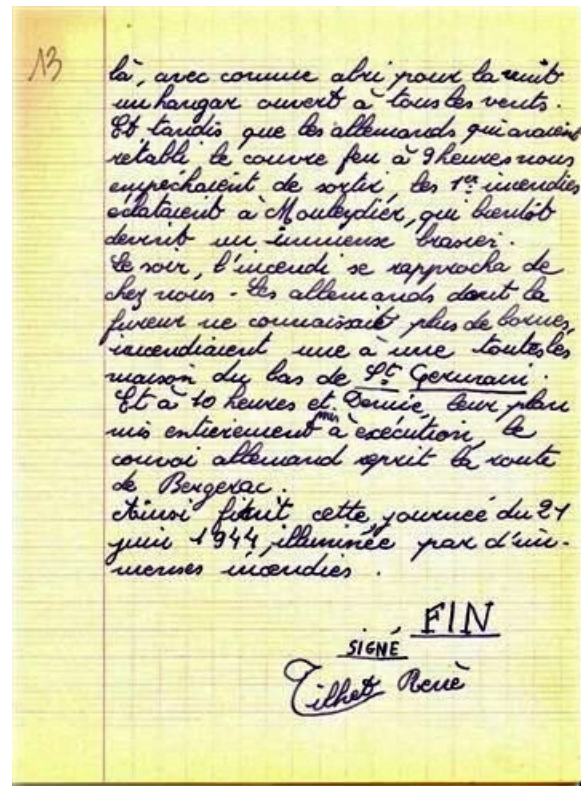 13
là, avec comme abri pour la nuit
un hangar ouvert à tous les vents.
Et tandis que les allemands qui avaient
rétabli le couvre feu à 9 heures nous
empêchaient de sortir, les 1ers incendies
éclataient à Mouleydier, qui bientôt
devint un immense brasier.
Le soir, l'incendi se rapprocha de
chez nous - Les allemands dont la
fureur ne connaissait plus de bornes,
incendiaient une à une toutes les
maison du bas de St Germain.
Et à 10 heures et Demie, leur plan
mis entièrement mis à exécution, le
convoi allemand reprit la route
de Bergerac.
Ainsi finit cette journée du 21
juin 1944, illuminée par d'im-
menses incendies.
FIN
SIGNÉ
Tilhet René